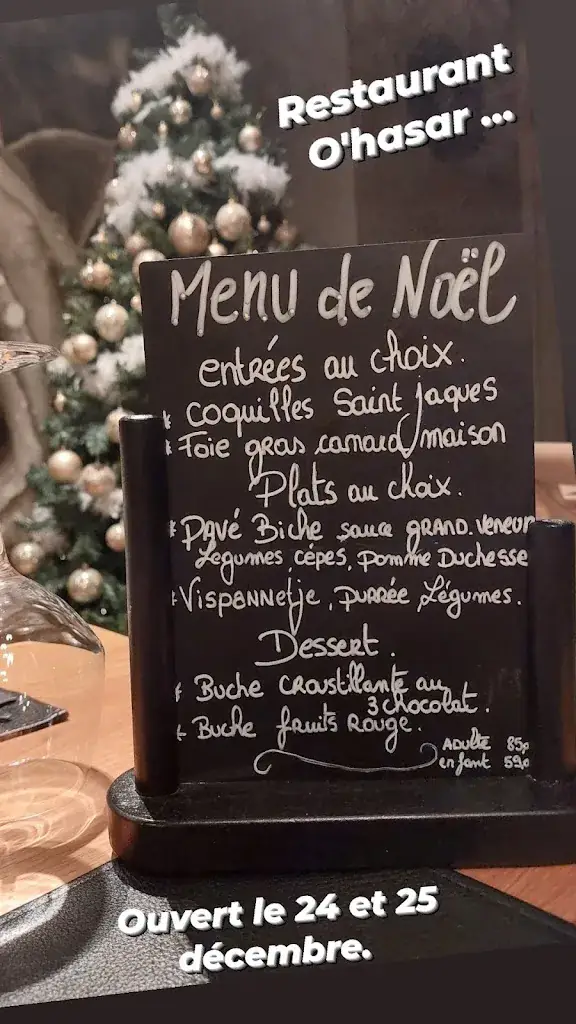 Restaurant
O'hasar ...
Menu de Noël
entrées au choix.
* coquilles Saint Jaques
* Foie gras canard/maison
Plats au choix.
* Pavé Biche sauce GRAND.Veneur
Légumes, cépes, pomme Duchesse
* Vispannetje, purrée Légumes.
Dessert.
* Buche croustillante au
3 chocolat.
* Buche fruits Rouge.
Adulte 85,0
enfant 59,0
Ouvert le 24 et 25
décembre.